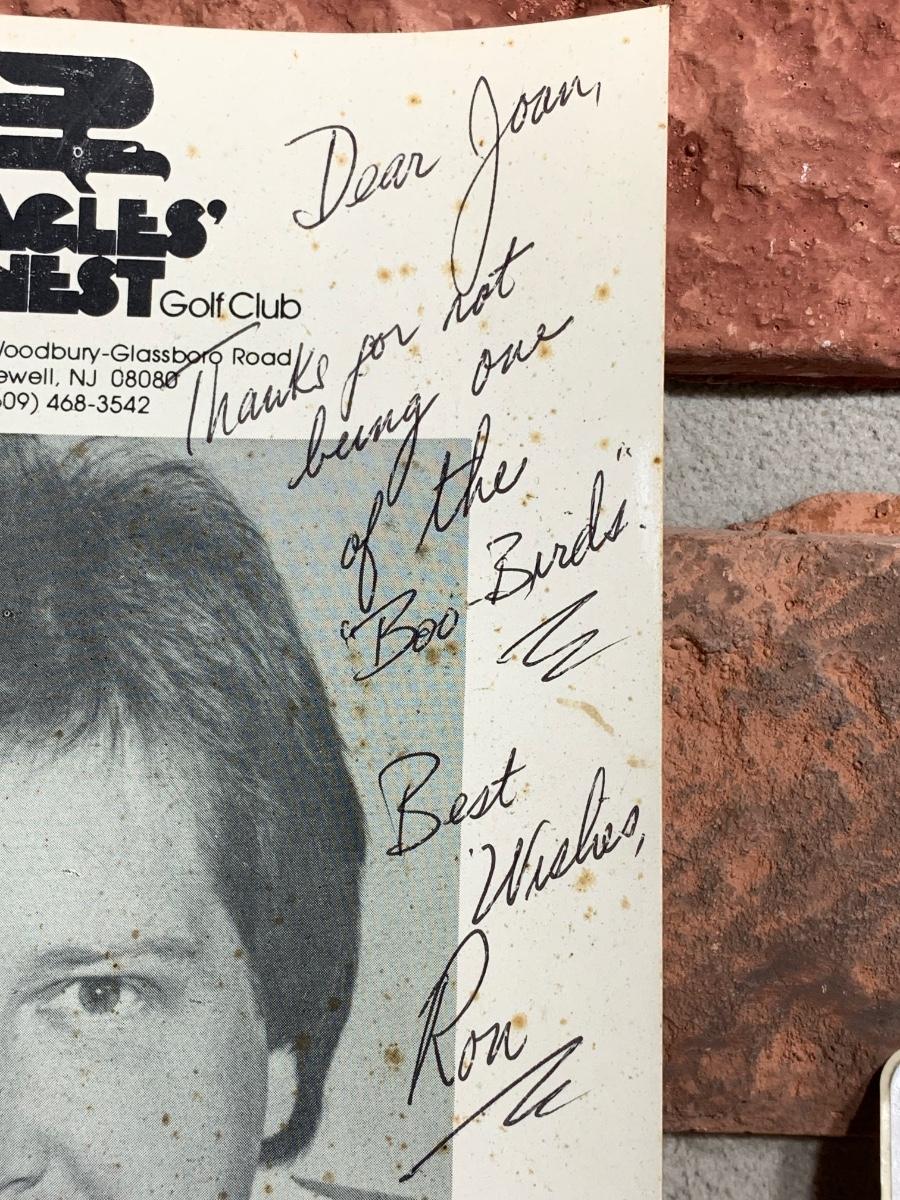 AGLES'
NEST Golf Club
Woodbury-Glassboro Road
ewell, NJ 08080
609) 468-3542
Dear Joan,
Thanks for not
being one
of the
"Boo-Birds."
Best
Wishes,
Ron